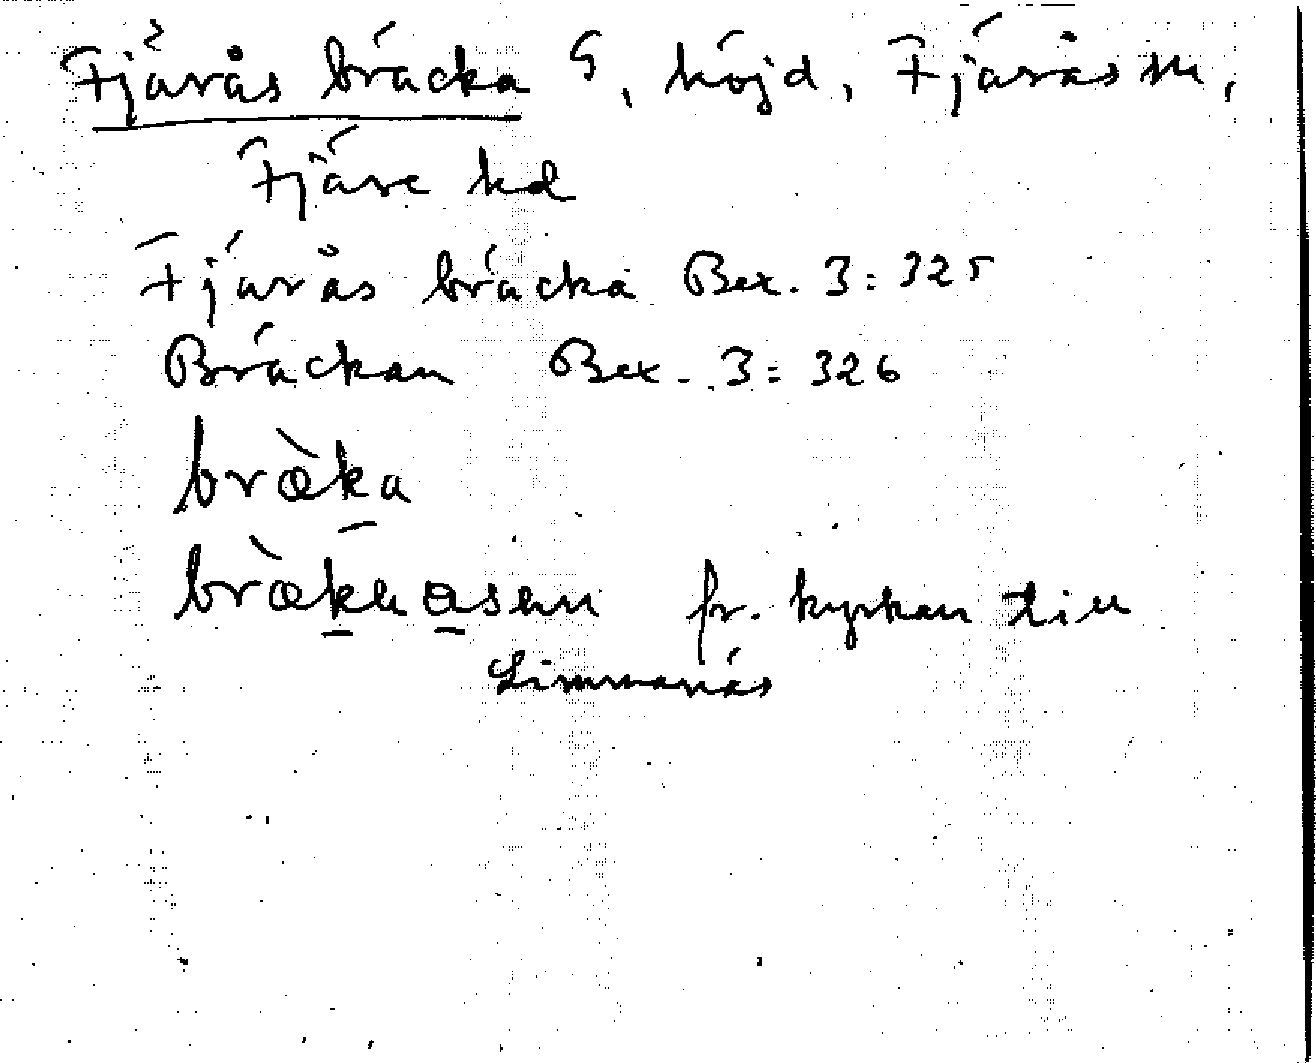 Fjärås bräcka G, höjd, Fjärås sn,
Fjäre hd
Fjärås bräcka Bex. 3:325
Bräckan Bex. 3:326
bræ̀ka
bræ̀kaasen fr. kyrkan till
Limmanäs